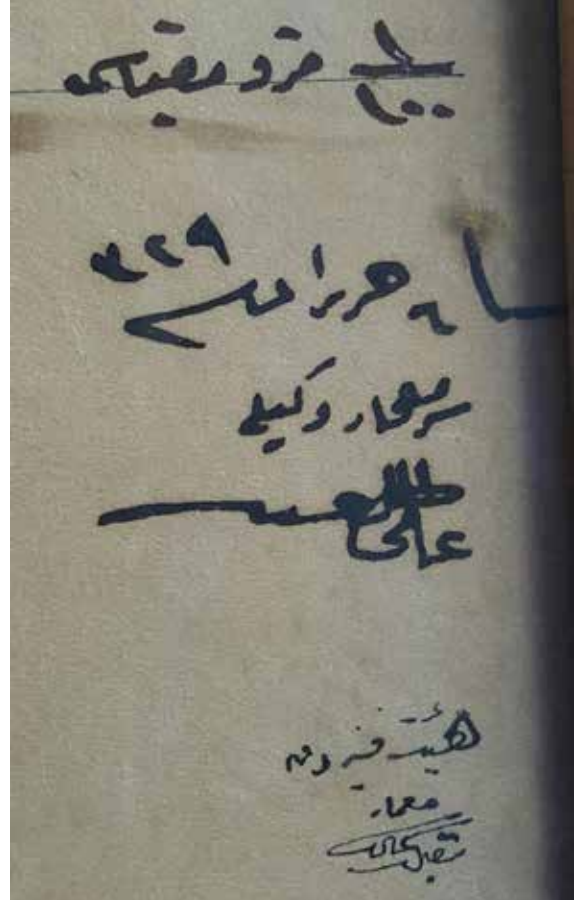 ١/١٠٠ مقياس
حزيران ٣٢٩
سرمعمار وكيلى
على طلعت
هيئت فنيه دن
معمار